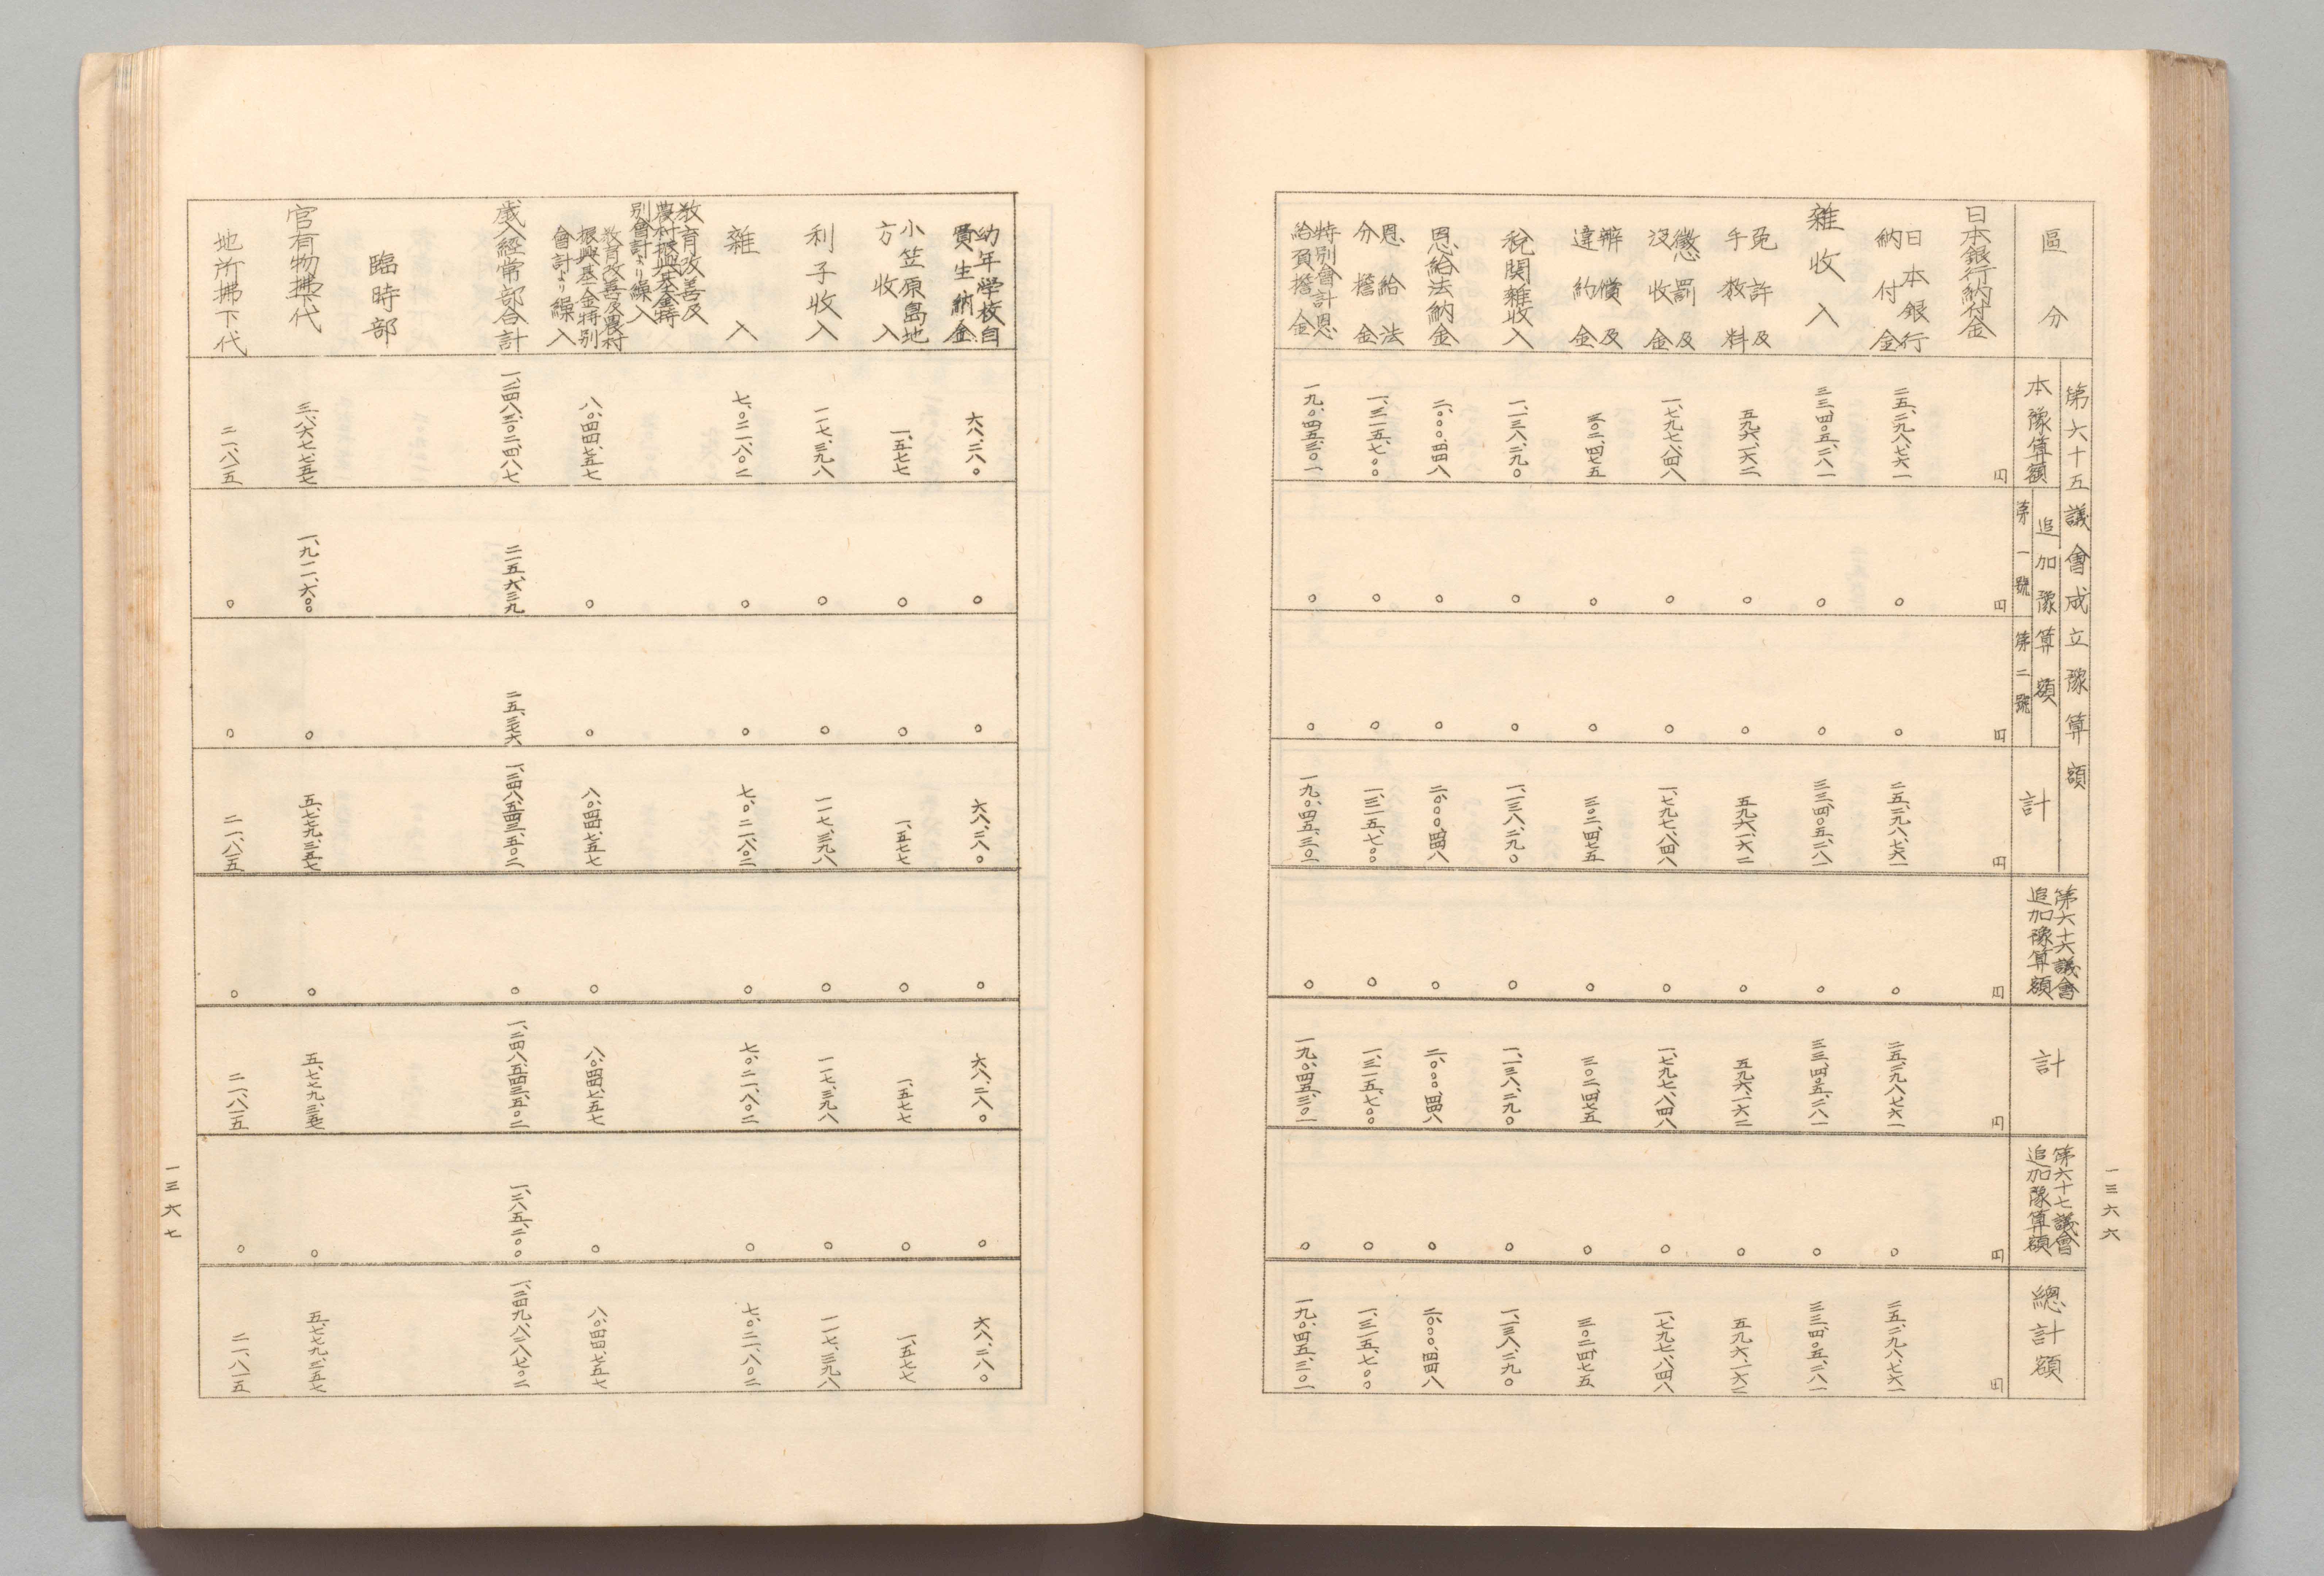 一三六六
區分
第六十五議會成立豫算額
本豫算額
追加豫算額
第一號
第二號
計
第六十六議會
追加豫算額
計
第六十七議會
追加豫算額
總計額
日本銀行納付金
円
円
円
円
円
円
円
円
日本銀行
納付金
二五、二九八、七六一
〇
〇
二五、二九八、七六一
〇
二五、二九八、七六一
〇
二五、二九八、七六一
雜收入
三三、四〇五、二八一
〇
〇
三三、四〇五、二八一
〇
三三、四〇五、二八一
〇
三三、四〇五、二八一
免許及
手数料
五九六、一六二
〇
〇
五九六、一六二
〇
五九六、一六二
〇
五九六、一六二
懲罰及
沒收金
一、七九七、八四八
〇
〇
一、七九七、八四八
〇
一、七九七、八四八
〇
一、七九七、八四八
辨償及
違約金
三〇二、四七五
〇
〇
三〇二、四七五
〇
三〇二、四七五
〇
三〇二、四七五
税関雜收入
一、一三八、二九〇
〇
〇
一、一三八、二九〇
〇
一、一三八、二九〇
〇
一、一三八、二九〇
恩給法納金
二、〇〇〇、四四八
〇
〇
二、〇〇〇、四四八
〇
二、〇〇〇、四四八
〇
二、〇〇〇、四四八
恩給法
分擔金
一、三一五、七〇〇
〇
〇
一、三一五、七〇〇
〇
一、三一五、七〇〇
〇
一、三一五、七〇〇
特別會計恩
給負擔金
一九、〇四五、三〇一
〇
〇
一九、〇四五、三〇一
〇
一九、〇四五、三〇一
〇
一九、〇四五、三〇一
幼年学校自
費生納金
六八、二八〇
〇
〇
六八、二八〇
〇
六八、二八〇
〇
六八、二八〇
小笠原島地
方收入
一、五七七
〇
〇
一、五七七
〇
一、五七七
〇
一、五七七
利子收入
一一七、三九八
〇
〇
一一七、三九八
〇
一一七、三九八
〇
一一七、三九八
雜入
七、〇二一、八〇二
〇
〇
七、〇二一、八〇二
〇
七、〇二一、八〇二
〇
七、〇二一、八〇二
教育改善及
農村振興基金特
別會計より繰入
教育改善及農村
振興基金特別
會計より繰入
八、〇四四、七五七
〇
〇
八、〇四四、七五七
〇
八、〇四四、七五七
〇
八、〇四四、七五七
歳入經常部合計
一、二四八、三〇二、四八七
二一五、六三九
二五、三七六
一、二四八、五四三、五〇二
〇
一、二四八、五四三、五〇二
一、二八五、二〇〇
一、二四九、八二八、七〇二
臨時部
官有物拂下代
三、八六七、七五七
一、九一一、六〇〇
〇
五、七七九、三五七
〇
五、七七九、三五七
〇
五、七七九、三五七
地所拂下代
二一、八一五
〇
〇
二一、八一五
〇
二一、八一五
〇
二一、八一五
一三六七